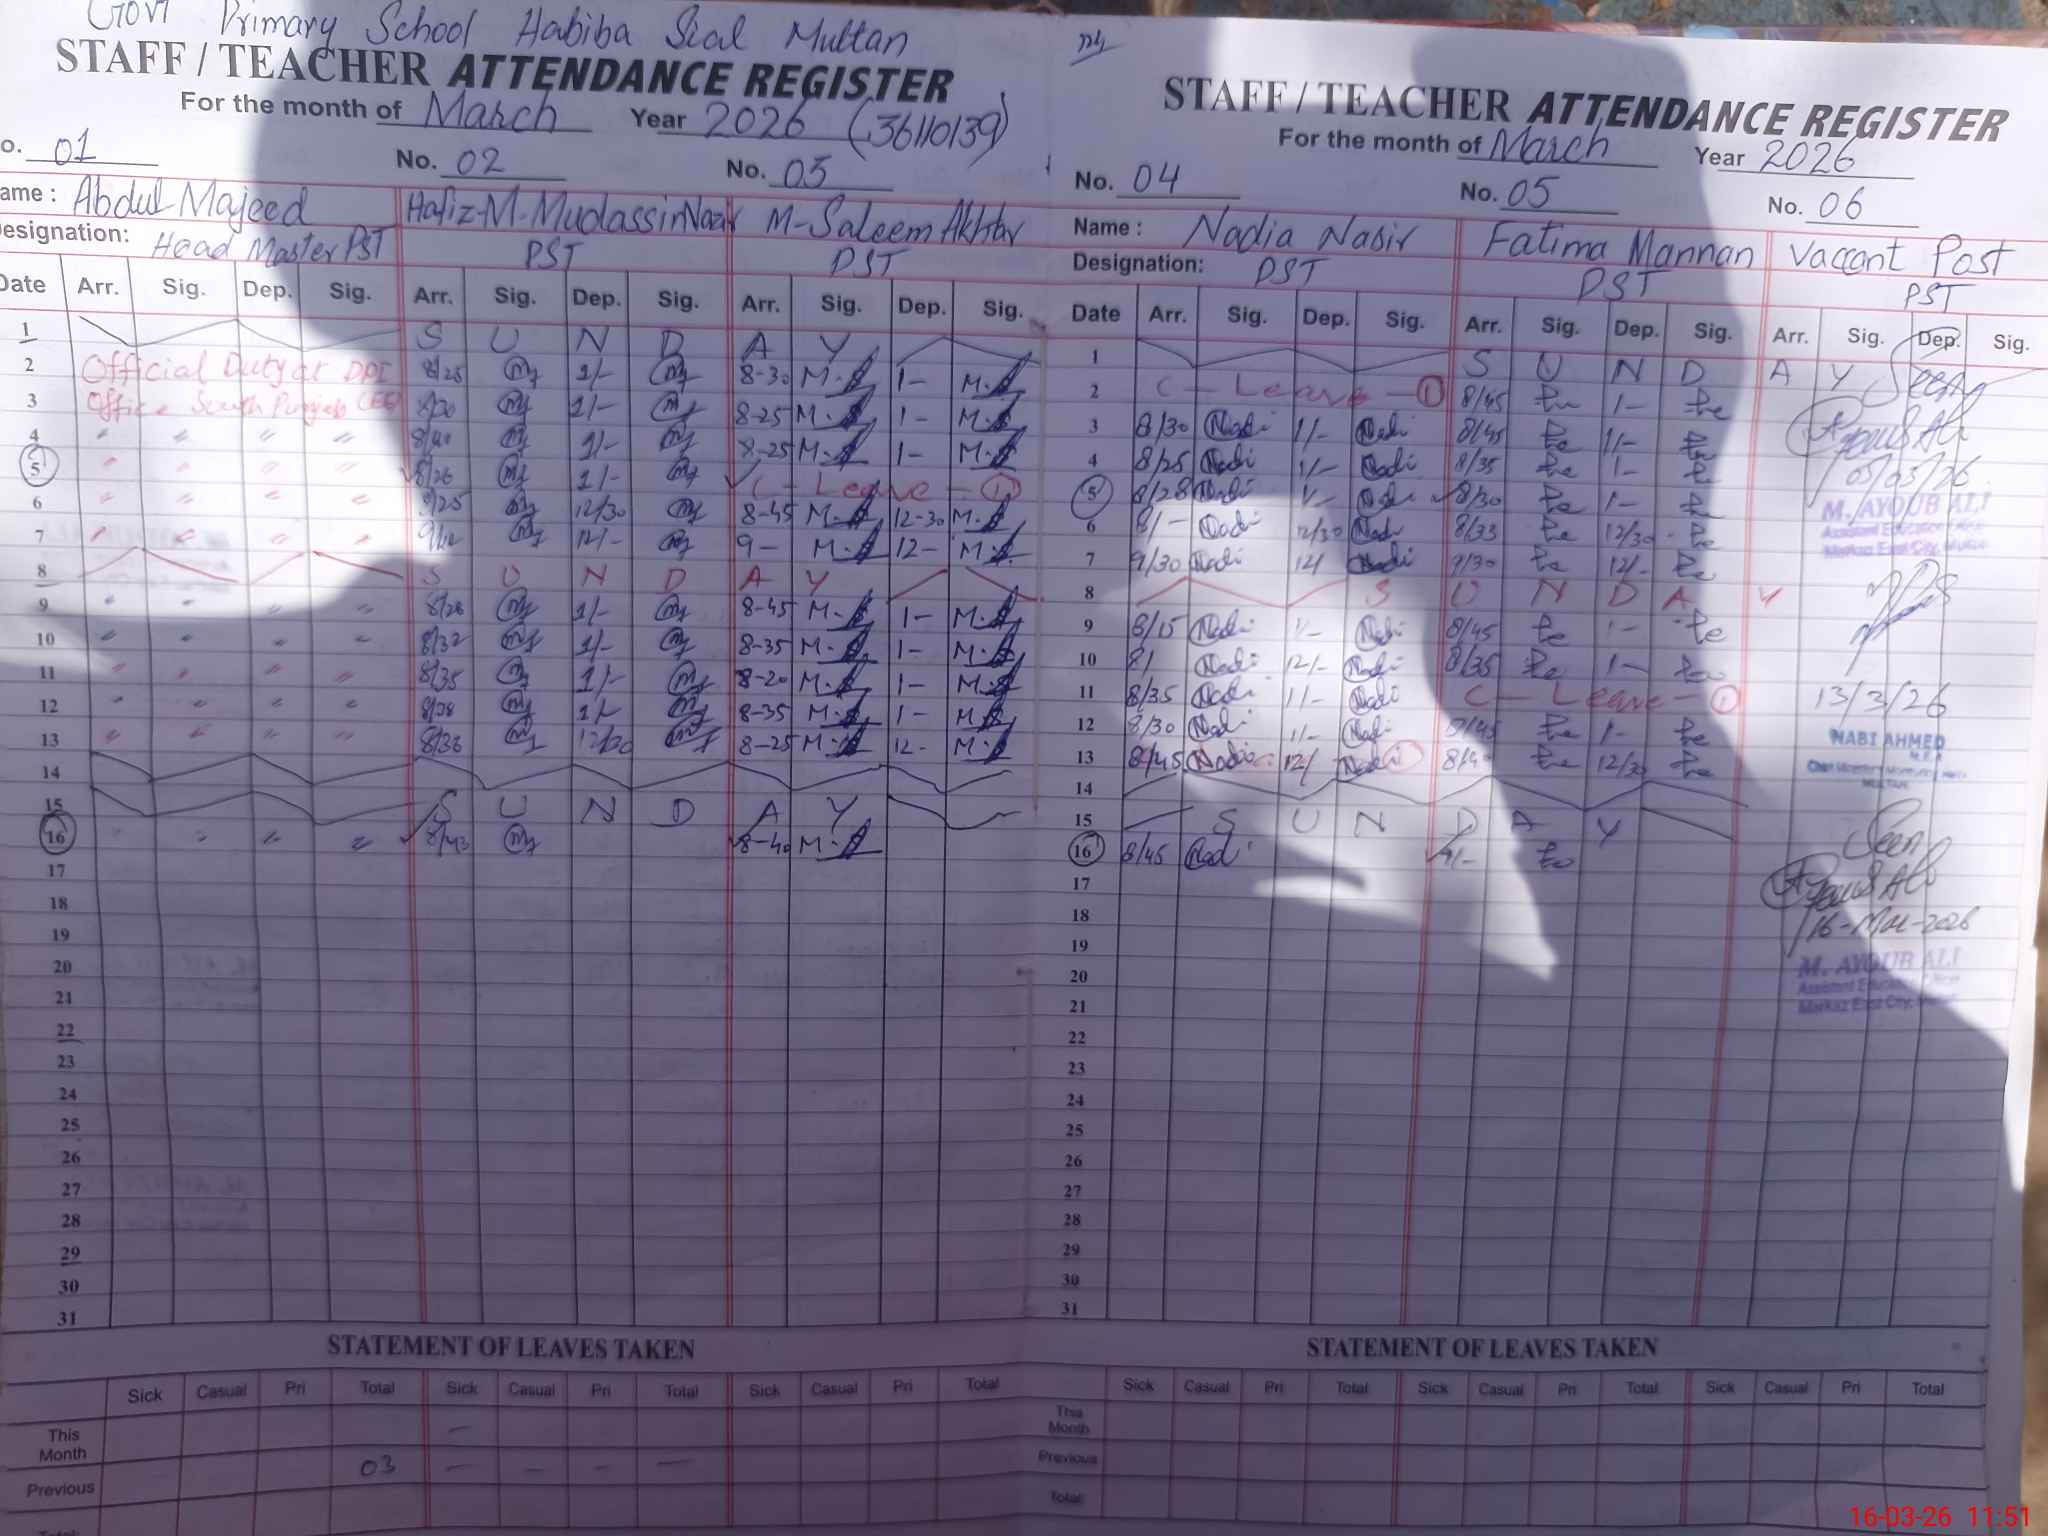 Govt Primary School Habiba Sial Multan
STAFF / TEACHER ATTENDANCE REGISTER
For the month of March Year 2026 (36110139)
o. 01 No. 02 No. 03
ame : Abdul Majeed Hafiz-M-Mudassir Nazar M-Saleem Akhtar
Designation: Head Master PST PST PST
Date Arr. Sig. Dep. Sig. Arr. Sig. Dep. Sig. Arr. Sig. Dep. Sig.
1 S U N D A Y
2 Official Duty at DPI 8/25 1/- 8-30 M. 1- M.
3 Office South Punjab 8/30 1/- 8-25 M. 1- M.
4 " " " " 8/40 1/- 8-25 M. 1- M.
5 " " " " 8/26 1/- C - Leave - 1
6 " " " " 8/25 12/30 8-45 M. 12-30 M.
7 " " " " 12/- 9- M. 12- M.
8 S U N D A Y
9 " " " " 8/28 1/- 8-45 M. 1- M.
10 " " " " 8/32 1/- 8-35 M. 1- M.
11 " " " " 8/35 1/- 8-20 M. 1- M.
12 " " " " 8/28 1/- 8-35 M. 1- M.
13 " " " " 8/36 12/30 8-25 M. 12- M.
14
15 S U N D A Y
16 " " " " 8/43 8-40 M.
17
18
19
20
21
22
23
24
25
26
27
28
29
30
31
STATEMENT OF LEAVES TAKEN
Sick Casual Pri Total Sick Casual Pri Total Sick Casual Pri Total
This Month -
Previous 03 - - - -
STAFF / TEACHER ATTENDANCE REGISTER
For the month of March Year 2026
No. 04 No. 05 No. 06
Name : Nadia Nasir Fatima Mannan Vaccant Post
Designation: PST PST PST
Date Arr. Sig. Dep. Sig. Arr. Sig. Dep. Sig. Arr. Sig. Dep. Sig.
1 S U N D A Y
2 C - Leave - 1 8/45 1-
3 8/30 Nadi 1/- Nadi 8/45 1/-
4 8/25 Nadi 1/- Nadi 8/35 1-
5 8/28 Nadi 1/- Nadi 8/30 1-
6 8/- Nadi 12/30 Nadi 8/33 12/30
7 9/30 Nadi 12/ Nadi 9/30 12/-
8 S U N D A Y
9 8/15 Nadi 1/- Nadi 8/45 1-
10 8/ Nadi 12/- Nadi 8/35 1-
11 8/35 Nadi 1/- Nadi C - Leave - 1
12 8/30 Nadi 1/- Nadi 1-
13 8/45 Nadi 12/- Nadi 12/30
14
15 S U N D A Y
16 8/45 Nadi 9/-
17
18
19
20
21
22
23
24
25
26
27
28
29
30
31
Seen
Ayoub Ali
05/03/26
M. AYOUB ALI
Assistant Education
Markaz East City, Multan
13/3/26
NABI AHMED
Seen
Ayoub Ali
16-Mar-2026
M. AYOUB ALI
Assistant Education
Markaz East City, Multan
STATEMENT OF LEAVES TAKEN
Sick Casual Pri Total Sick Casual Pri Total Sick Casual Pri Total
This Month
Previous
Total:
16-03-26 11:51